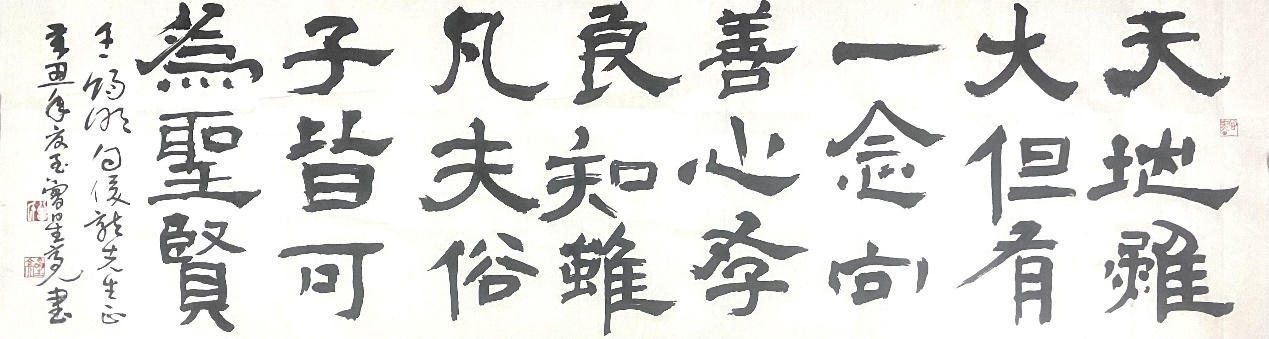 天地雖
大但有
一念向
善心存
良知雖
凡夫俗
子皆可
為聖賢
王陽明句俊龍先生正
辛丑年夏至曾星亮書